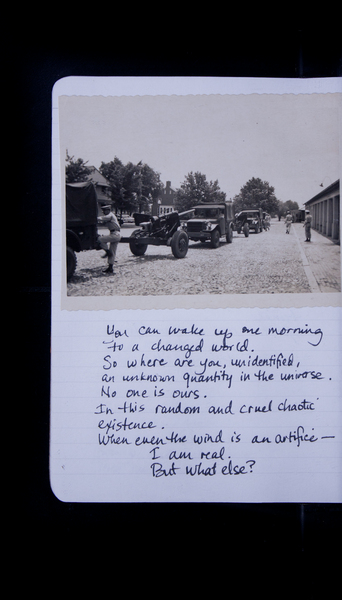 You can wake up one morning
to a changed world.
So where are you, unidentified,
an unknown quantity in the universe.
No one is ours.
In this random and cruel chaotic
existence.
When even the wind is an artifice —
I am real.
But what else?